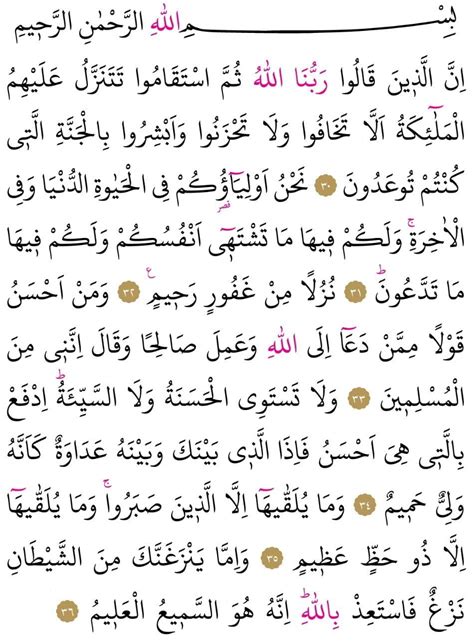 بِسْمِ اللّٰهِ الرَّحْمٰنِ الرَّحٖيمِ
اِنَّ الَّذٖينَ قَالُوا رَبُّنَا اللّٰهُ ثُمَّ اسْتَقَامُوا تَتَنَزَّلُ عَلَيْهِمُ
الْمَلٰٓئِكَةُ اَلَّا تَخَافُوا وَلَا تَحْزَنُوا وَاَبْشِرُوا بِالْجَنَّةِ الَّتٖى
كُنْتُمْ تُوعَدُونَ ﴿٣٠﴾ نَحْنُ اَوْلِيَٓاؤُ۬كُمْ فِى الْحَيٰوةِ الدُّنْيَا وَفِى
الْاٰخِرَةِۚ وَلَكُمْ فٖيهَا مَا تَشْتَهٖٓى اَنْفُسُكُمْ وَلَكُمْ فٖيهَا
مَا تَدَّعُونَؕ ﴿٣١﴾ نُزُلًا مِنْ غَفُورٍ رَحٖيمٍࣖ ﴿٣٢﴾ وَمَنْ اَحْسَنُ
قَوْلًا مِمَّنْ دَعَٓا اِلَى اللّٰهِ وَعَمِلَ صَالِحًا وَقَالَ اِنَّنٖى مِنَ
الْمُسْلِمٖينَ ﴿٣٣﴾ وَلَا تَسْتَوِى الْحَسَنَةُ وَلَا السَّيِّئَةُؕ اِدْفَعْ
بِالَّتٖى هِىَ اَحْسَنُ فَاِذَا الَّذٖى بَيْنَكَ وَبَيْنَهُ عَدَاوَةٌ كَاَنَّهُ
وَلِىٌّ حَمٖيمٌ ﴿٣٤﴾ وَمَا يُلَقّٰيهَٓا اِلَّا الَّذٖينَ صَبَرُواۚ وَمَا يُلَقّٰيهَٓا
اِلَّا ذُو حَظٍّ عَظٖيمٍ ﴿٣٥﴾ وَاِمَّا يَنْزَغَنَّكَ مِنَ الشَّيْطَانِ
نَزْغٌ فَاسْتَعِذْ بِاللّٰهِؕ اِنَّهُ هُوَ السَّمٖيعُ الْعَلٖيمُ ﴿٣٦﴾